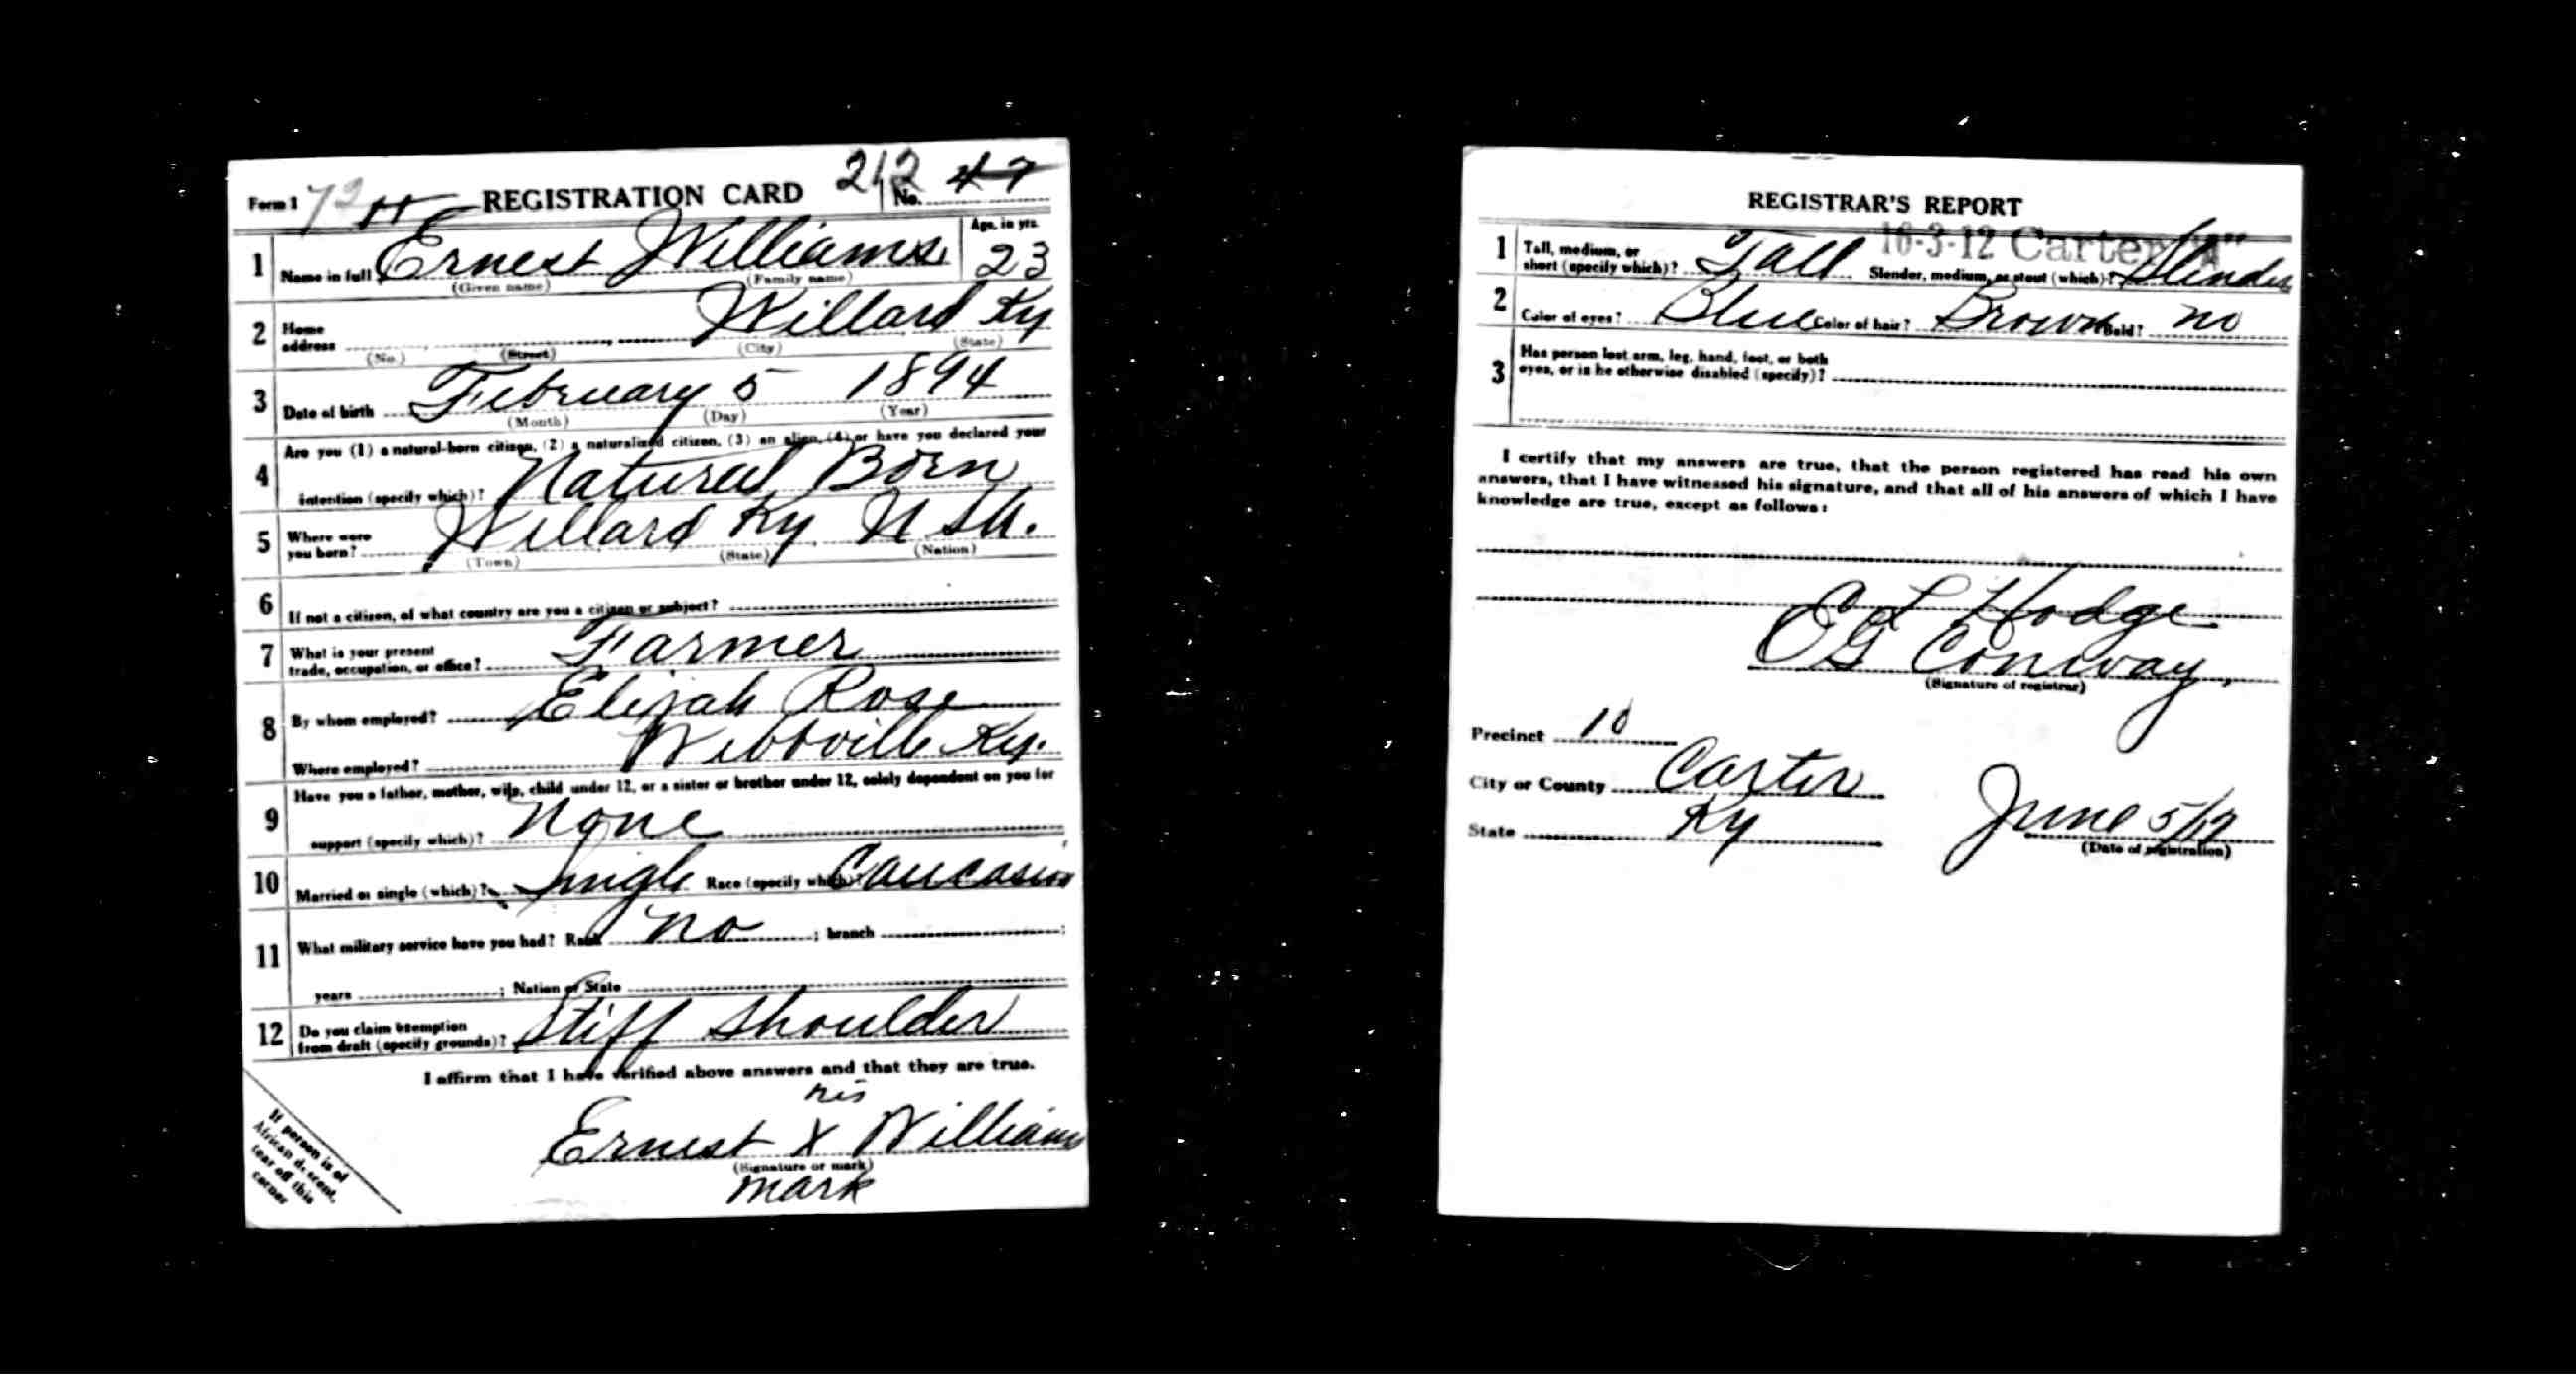 Form 1 REGISTRATION CARD 212 No. 47
1 Name in full Ernest Williams Age, in yrs. 23
(Given name) (Family name)
2 Home address Willard Ky
(No.) (Street) (City) (State)
3 Date of birth February 5 1894
(Month) (Day) (Year)
4 Are you (1) a natural-born citizen, (2) a naturalized citizen, (3) an alien, (4) or have you declared your
intention (specify which)? Natural Born
5 Where were you born? Willard Ky U S A.
(Town) (State) (Nation)
6 If not a citizen, of what country are you a citizen or subject?
7 What is your present trade, occupation, or office? Farmer
8 By whom employed? Elijah Rose
Where employed? Webbville Ky.
9 Have you a father, mother, wife, child under 12, or a sister or brother under 12, solely dependent on you for
support (specify which)? None
10 Married or single (which)? Single Race (specify which)? Caucasion
11 What military service have you had? Rank no ; branch ;
years ; Nation or State
12 Do you claim exemption from draft (specify grounds)? Stiff Shoulder
I affirm that I have verified above answers and that they are true.
his
Ernest X Williams
(Signature or mark)
mark
If person is of
African descent,
tear off this
corner
REGISTRAR'S REPORT
16-3-12 Carter "A"
1 Tall, medium, or short (specify which)? Tall Slender, medium, or stout (which)? Slender
2 Color of eyes? Blue Color of hair? Brown Bald? no
3 Has person lost arm, leg, hand, foot, or both
eyes, or is he otherwise disabled (specify)?
I certify that my answers are true, that the person registered has read his own
answers, that I have witnessed his signature, and that all of his answers of which I have
knowledge are true, except as follows:
C L Hodge
Conway,
(Signature of registrar)
Precinct 10
City or County Carter
State Ky
June 5/17
(Date of registration)